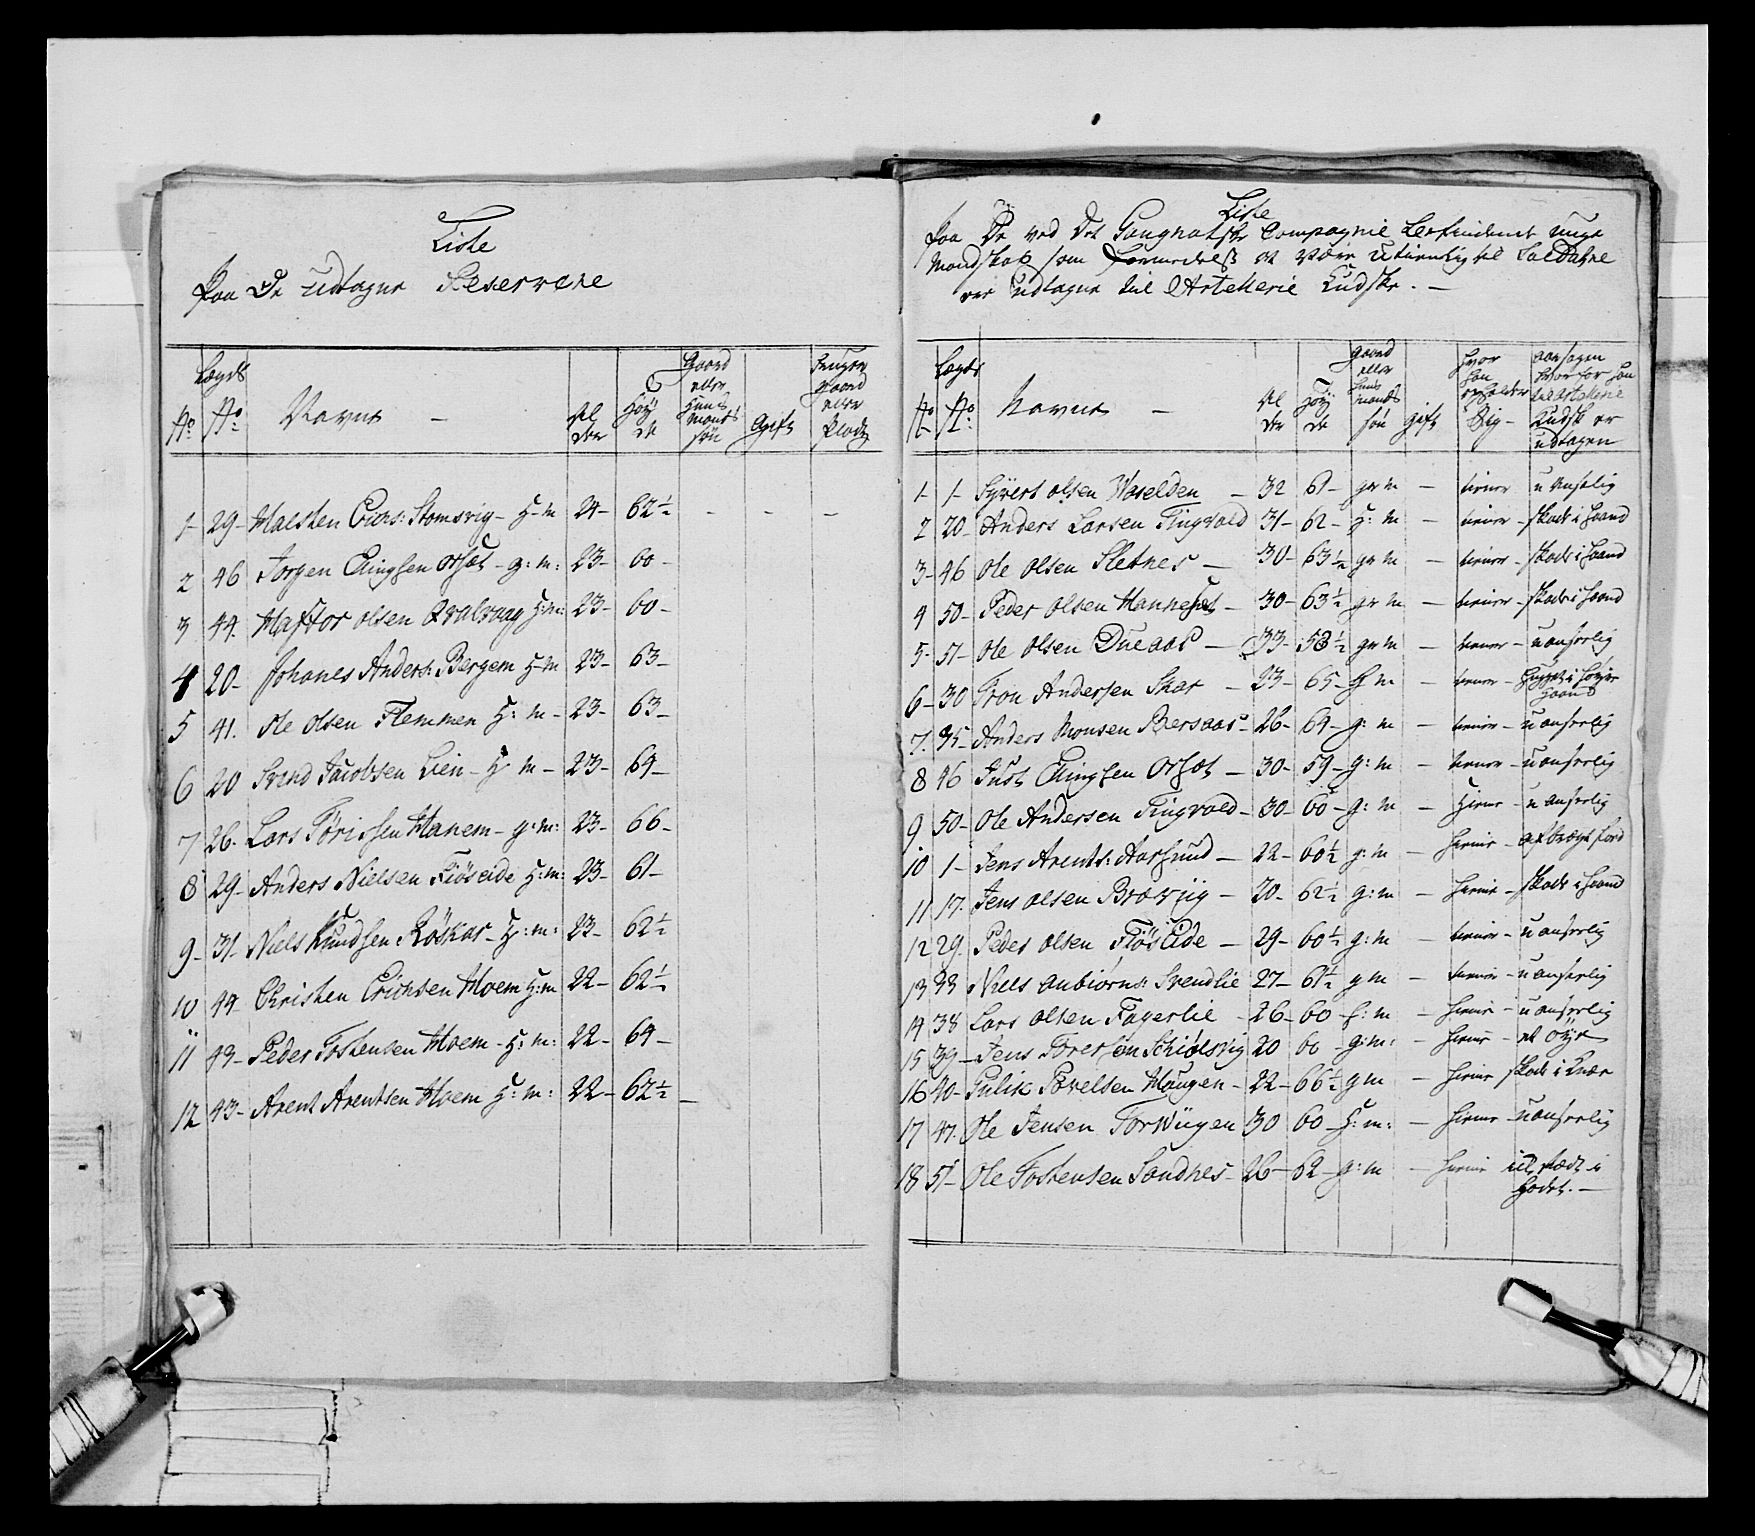 Liste
Paa De udtagne Reservere
Lægds
No: No: Navne - Al der Höy de Gaard eller Huus mands søn Gift bruger gaard eller Plads
1- 29- Halsten Erichs: Stomsvig - H-m 24- 62½ - - -
2 46 Jørgen Ellingsen Orset - g: m: 23- 60-
3 44. Haftor olsen Qvalvaag H:m: 23- 60-
4 20- Johanes Anders: Bergem H-m 23- 63-
5 41. Ole olsen Flemmen H: m- 23- 63-
6 20 Svend Jacobsen Lien - H m- 23- 64-
7 26- Lars Tørissen Hanem - g:m: 23- 66-
8 29- Anders Nielsen Fiöseide H:m: 23- 61-
9- 31- Niels Knudsen Röskar - H:m: 23- 62½
10 44 Christen Erichsen Hoem H:m 22- 62½
11 43- Peder Tostensen Hoem - H: m: 22- 64-
12 43- Arent Arentsen Hoem H: m: 22- 62½ -
Liste
Paa De ved Det Gangnatske Compagnie befindende unge
Mandskab som formedelst at være utienlig til Soldatne
ere udtagne til Artellerie Kudske. -
Lægds
No No: Navne - Al der Höy de gaard eller huus mands søn gift hvor han opholder Sig - aarsagen hvorfor han til Artellerie Kudsk er udtagen
1- 1- Syvert olsen Waselden - 32 61- gr m - tiener uanselig
2 20- Anders Larsen Tingvold 31- 62- H: m - tiener - skade i haand
3- 46 Ole olsen Sletnes - 30- 63½ gr m - tiener - skade i haand
4 50- Peder olsen Hanneset - 30- 63½ gr m - tiener - skade i haand
5- 51- Ole olsen Dueaas - 33- 58½ gr m - tiener - uanseelig
6- 30 Tron Andersen Skar - 23- 65- H m - tiener - hugget i höyre haand
7. 35- Anders Monsen Bersaas - 26- 64- g: m - tiener - uanseelig
8 46 Just Ellingsen Orset - 30- 59- g: m - tiener - uanseelig
9 50- Ole Andersen Tingvold - 30- 60- g: m - Hieme - uanseelig
10 1- Jens Arents: Aarsund - 22- 60½ g: m - hieme -
11 17. Jens olsen Bravjig - 20- 62½ g: m - hieme - skade i haand
12 29. Peder olsen Fiöseide - 29- 60½ g: m - tiener - uanseelig
13 33 Niels Anbiørns: Svendlie 27- 61½ g m - tiener - uanseelig
14 38 Lars olsen Fagerlie - 26- 60 h: m - hieme - uanseelig
15 39- Jens Toresøn Schiølsvig 20 60 - g:m: - hieme - et öye
16 40- Gulik Povelsen Haugen - 22- 66½ g m - hieme skade i Knæe
17 47. Ole Jensen Torvügen 30 60- H: m: - hieme - uanseelig
18 51- Ole Tostensen Sandnes - 26- 62- g: m - hieme i
hodet. -